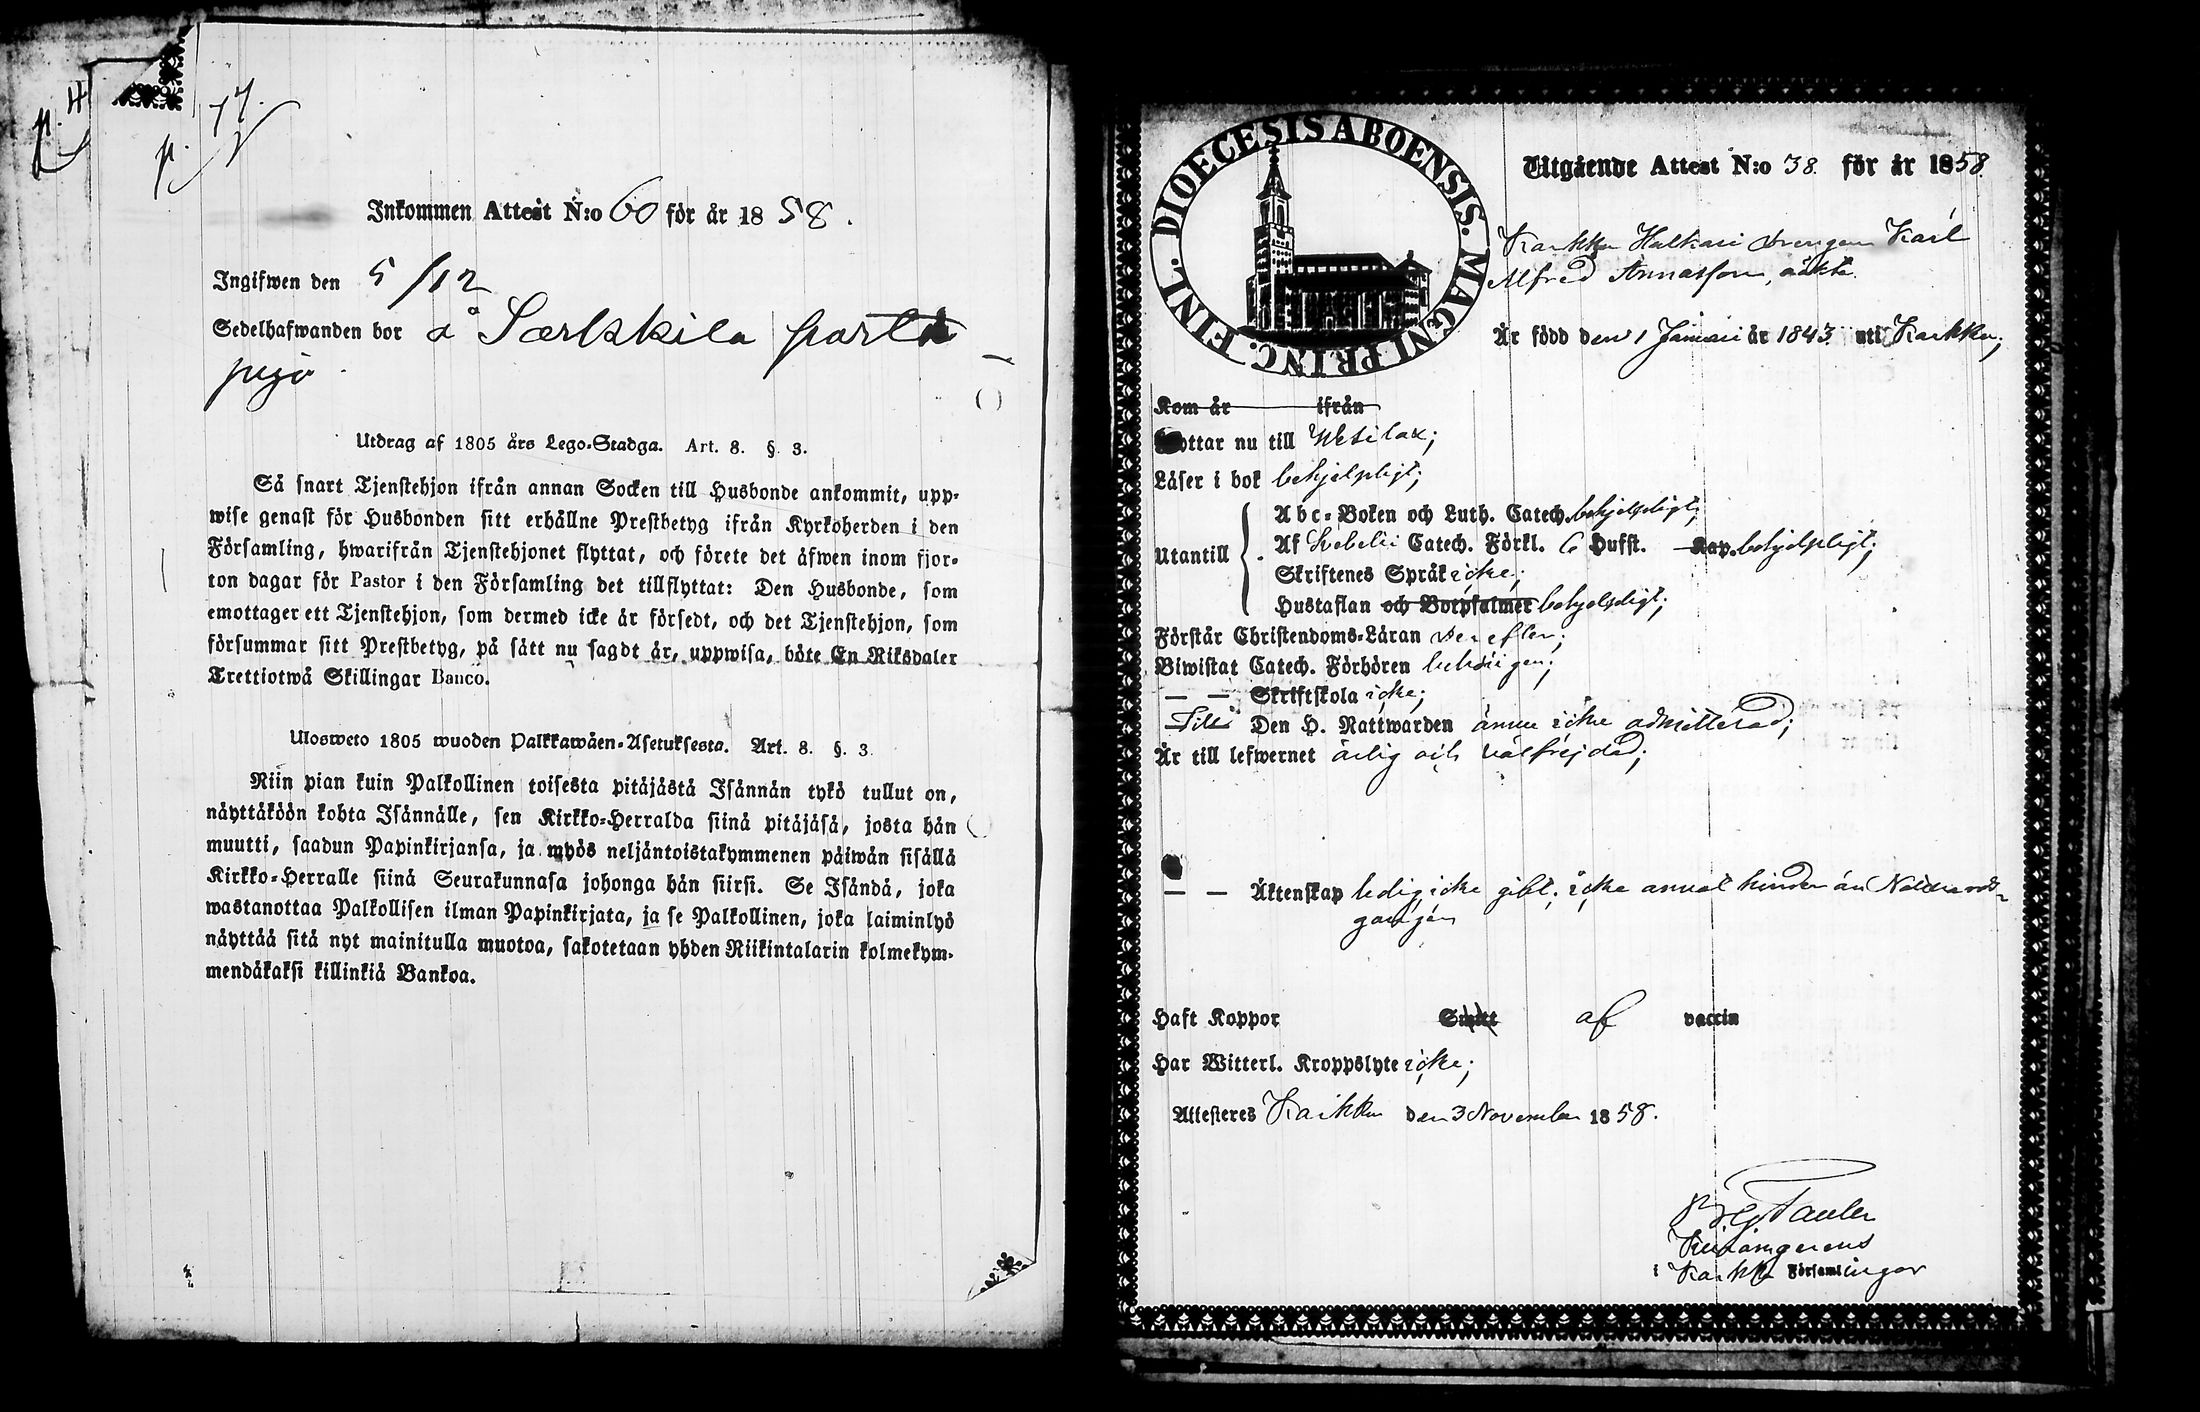 p. 4
p. 77.
Inkommen Attest N:o 60 för år 1858.
Ingifwen den 5/12
Sedelhafwanden bor å Særkkila
pojo
Utdrag af 1805 års Lego-Stadga. Art. 8. § 3.
Så snart Tjenstehjon ifrån annan Socken till Husbonde ankommit, upp-
wise genast för Husbonden sitt erhållne Prestbetyg ifrån Kyrkoherden i den
Församling, hwarifrån Tjenstehjonet flyttat, och förete det äfwen inom fjor-
ton dagar för Pastor i den Församling det tillflyttat: Den Husbonde, som
emottager ett Tjenstehjon, som dermed icke är försedt, och det Tjenstehjon, som
försummar sitt Prestbetyg, på sätt nu sagdt är, uppwisa, böte En Riksdaler
Trettiotwå Skillingar Banco.
Ulosweto 1805 wuoden Palkkawäen-Asetuksesta. Art. 8. §. 3.
Niin pian kuin Palkollinen toisesta pitäjästä Isännän tykö tullut on,
näyttäköön kohta Isännälle, sen Kirkko-Herralda siinä pitäjäsä, josta hän
muutti, saadun Papinkirjansa, ja myös neljäntoistakymmenen päiwän sisällä
Kirkko-Herralle siinä Seurakunnasa johonga hän siirsi. Se Isändä, joka
wastanottaa Palkollisen ilman Papinkirjata, ja se Palkollinen, joka laiminlyö
näyttää sitä nyt mainitulla muotoa, sakotetaan yhden Riikintalarin kolmekym-
mendäkaksi killinkiä Bankoa.
DIOECESIS ABOENSIS. MAGNI PRINC. FINL.
Utgående Attest N:o 38. för år 1858.
Karkku Halkari drengen Karl
Alfred Annasson, oäkta.
Är född den 1 Januari år 1843. uti Karkku;
Kom år ifrån
Flottar nu till Wesilax;
Läser i bok behjelpligt;
Utantill
Abc-Boken och Luth. Catech. behjelpligt;
Af Svebelii Catech. Förkl. 6 Hufst. Kap. behjelpligt;
Skriftenes Språk icke;
Hustaflan och Botpsalmer behjelpligt;
Förstår Christendoms-Läran derefter;
Biwistat Catech. Förhören behörigen;
— — Skriftskola icke;
Till Den H. Nattwarden ännu icke admitterad;
Är till lefwernet ärlig och välfrejdad;
— — Äktenskap ledig, icke gift, icke annat hinder än Nattvards-
gången
Haft Koppor Smitt af vaccin
Har Witterl. Kroppslyte icke;
Attesteres Karkku den 3 November 1858.
i Karkku Församlingar